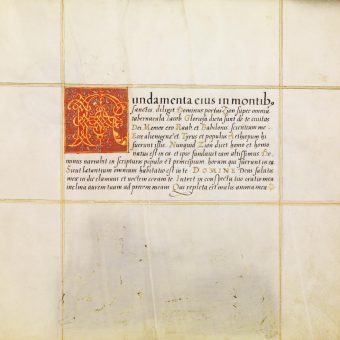 Fundamenta eius in montib.
sanctis diligit Dominus portas Sion super omnia
tabernacula Iacob Gloriosa dicta sunt de te civitas
Dei Memor ero Raab et Babilonis scientium me
Ecce alienigenę et Tyrus et populus Aethiopum hi
fuerunt illic Nunquid Zion dicet homo et homo
natus est in ea et ipse fundavit eam altissimus Do
minus narrabit in scripturis populo et principium horum qui fuerunt in ea
Sicut letantium omnium habitatio est in te DOMINE Deus salutis
meę in die clamavi et noctem coram te Intret in conspectu tuo oratio mea
inclina aurem tuam ad precem meam Quia repleta est malis anima mea